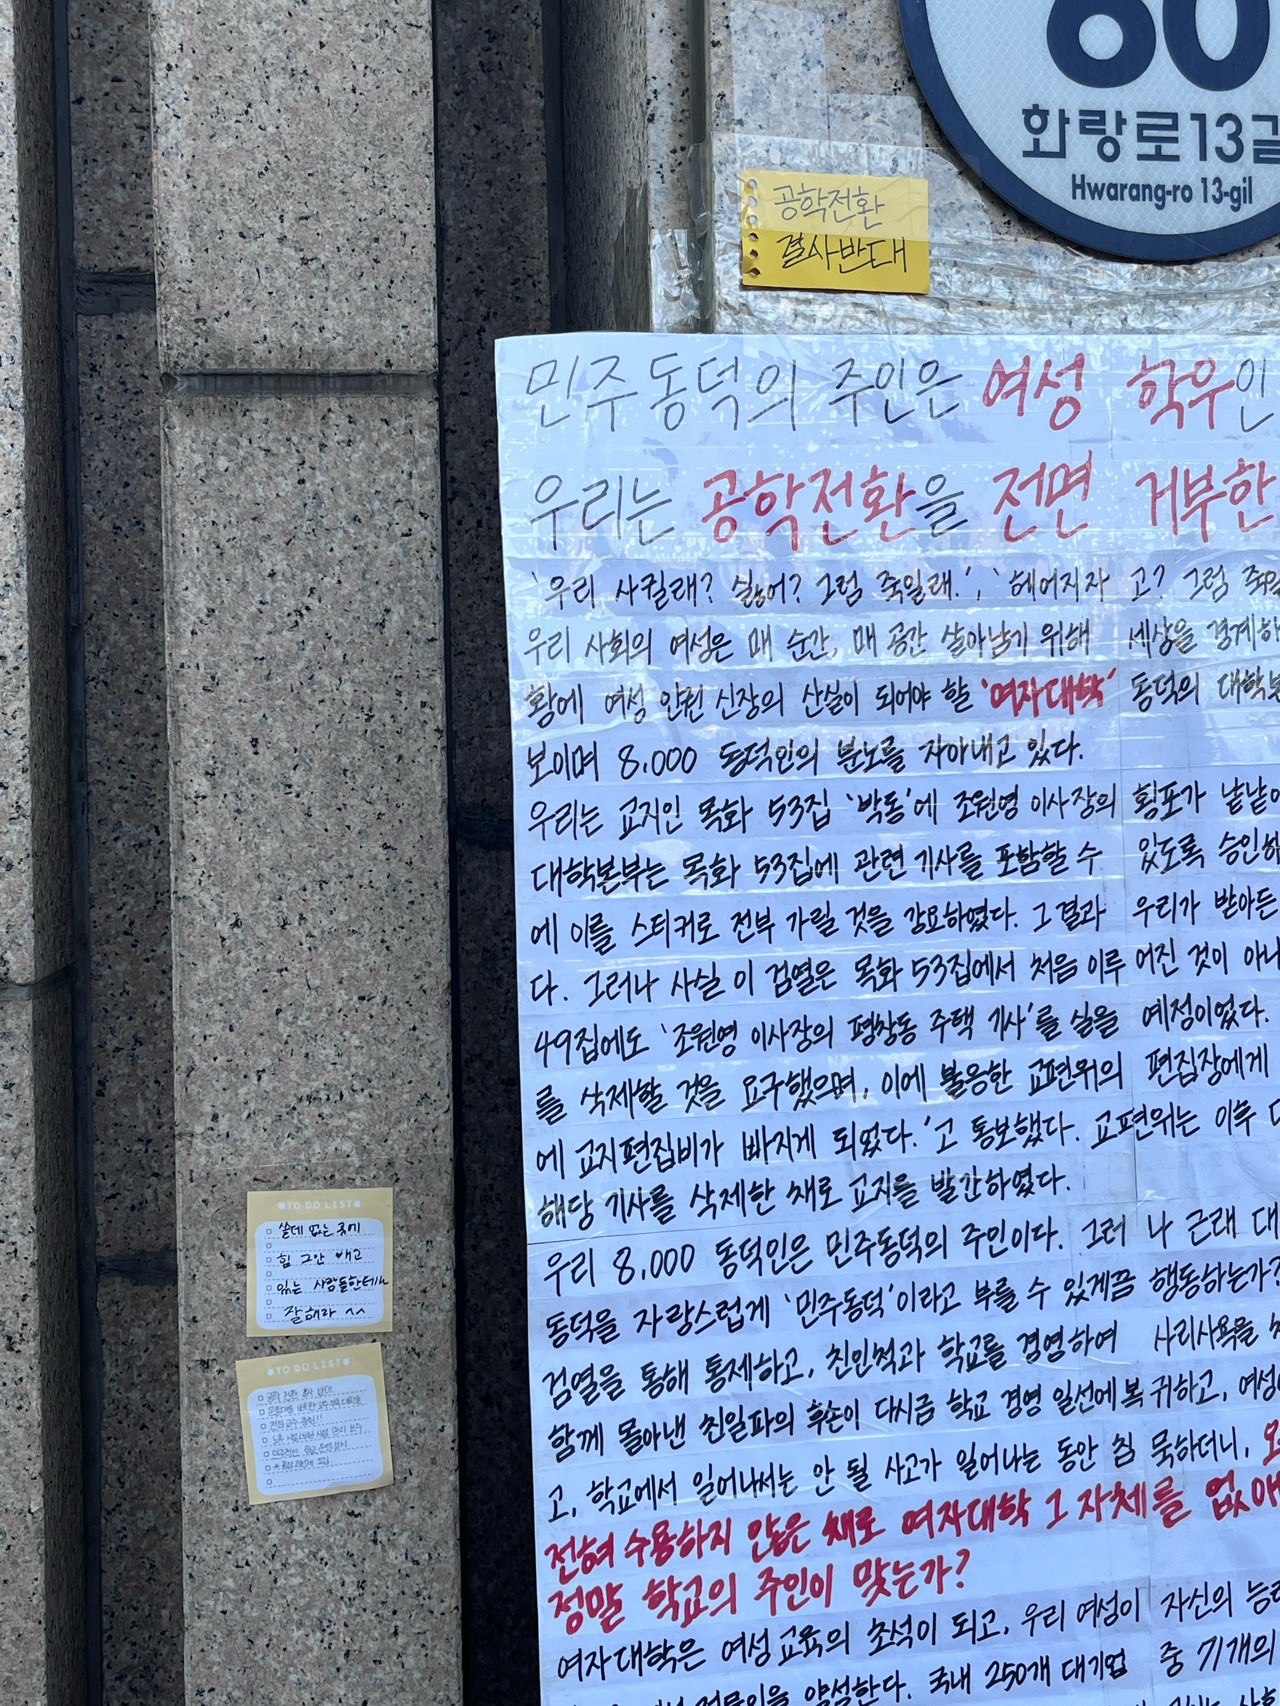 60
화랑로13길
Hwarang-ro 13-gil
공학전환
결사반대
민주동덕의 주인은 여성 학우인
우리는 공학전환을 전면 거부한
'우리 사귈래? 싫어? 그럼 죽일래.', '헤어지자고? 그럼 죽일
우리 사회의 여성은 매 순간, 매 공간 살아남기 위해 세상을 경계하
황에 여성 안권 신장의 산실이 되어야 할 '여자대학' 동덕의 대학본
보이며 8,000 동덕인의 분노를 자아내고 있다.
우리는 교지인 목화 53집 '박동'에 조원영 이사장의 횡포가 낱낱이
대학본부는 목화 53집에 관련 기사를 포함할 수 있도록 승인하
에 이를 스티커로 전부 가릴 것을 강요하였다. 그 결과 우리가 받아든
다. 그러나 사실 이 검열은 목화 53집에서 처음 이루어진 것이 아니
49집에도 '조원영 이사장의 평창동 주택 기사'를 실을 예정이었다.
를 삭제할 것을 요구했으며, 이에 불응한 교편위의 편집장에게
에 교지편집비가 빠지게 되었다.'고 통보했다. 교편위는 이후
해당 기사를 삭제한 채로 교지를 발간하였다.
우리 8,000 동덕인은 민주동덕의 주인이다. 그러나 근래 대
동덕을 자랑스럽게 '민주동덕'이라고 부를 수 있게끔 행동하는가?
검열을 통해 통제하고, 친인척과 학교를 경영하여 사리사욕을
함께 몰아낸 친일파의 후손이 다시금 학교 경영 일선에 복귀하고, 여성
고, 학교에서 일어나서는 안 될 사고가 일어나는 동안 침묵하더니,
전혀 수용하지 않은 채로 여자대학 그 자체를 없애
정말 학교의 주인이 맞는가?
여자대학은 여성 교육의 초석이 되고, 우리 여성이 자신의 능
양성한다. 국내 250개 대기업 중 71개의
TO DO LIST
쓸데 없는 곳에
힘 그만 빼고
있는 사람들한테나
잘해라 ^^
TO DO LIST
공학 전환